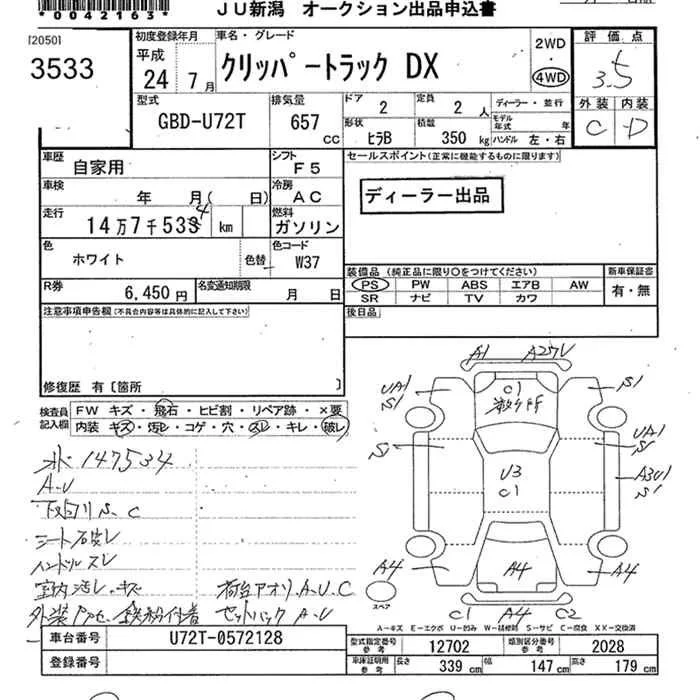 *0042163*
JU新潟 オークション出品申込書
[2050]
3533
初度登録年月
平成
24 7月
車名・グレード
クリッパートラック DX
2WD
・
4WD
評価点
3.5
外装 内装
C D
型式
GBD-U72T
排気量
657
cc
ドア
2
定員
2人
ディーラー・並行
モデル年式 年
形状
ヒラB
積載
350 kg
ハンドル 左・右
車歴
自家用
シフト
F5
車検
年 月( 日)
冷房
AC
走行
14万7千533 4 km
燃料
ガソリン
色
ホワイト
色替
色コード
W37
R券
6,450円
名変通知期限
月 日
セールスポイント(正常に機能するものに限ります)
ディーラー出品
装備品(純正品に限り○をつけてください)
新車保証書
PS PW ABS エアB AW
SR ナビ TV カワ
有・無
後日品
注意事項申告欄(不具合内容等は具体的に記入して下さい)
修復歴 有〔箇所 〕
検査員記入欄
FW キズ・飛石・ヒビ割・リペア跡・×要
内装 キズ・汚レ・コゲ・穴・スレ・キレ・破レ
147534
A.U
下回りS.C
シート破レ
ハンドルスレ
室内汚レ・キズ
荷台アオリ.A.U.C
鉄粉付着
A1 A2
UA1
S1
C1
S1
S1
UA1
S1
U3
C1
A3U1
S1
A4
A4
A4
スペア
C1 A4 C2
A-キズ E-エクボ U-凹み W-補修跡 S-サビ C-腐食 XX-交換済
車台番号
U72T-0572128
登録番号
型式指定番号
参考
12702
類別区分番号
参考
2028
車庫証明用
参考
長さ
339 cm
幅
147 cm
高さ
179 cm